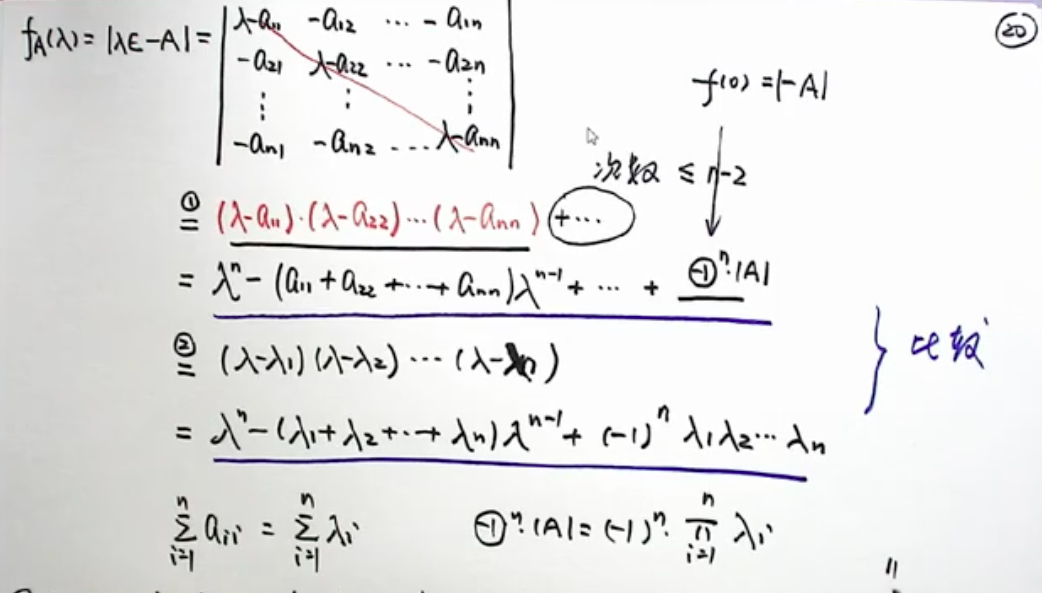 ⑳
f_A(λ) = |λE-A| = | λ-a₁₁ -a₁₂ ⋯ -a₁ₙ |
| -a₂₁ λ-a₂₂ ⋯ -a₂ₙ |
| ⋮ ⋮ ⋮ |
| -aₙ₁ -aₙ₂ ⋯ λ-aₙₙ |
f(0) = |-A|
次数 ≤ n-2
① = (λ-a₁₁)·(λ-a₂₂)⋯(λ-aₙₙ) +⋯
= λⁿ - (a₁₁+a₂₂+⋯+aₙₙ)λⁿ⁻¹ + ⋯ + (-1)ⁿ·|A|
② = (λ-λ₁)(λ-λ₂) ⋯ (λ-λₙ)
} 比较
= λⁿ - (λ₁+λ₂+⋯+λₙ)λⁿ⁻¹ + (-1)ⁿ λ₁λ₂⋯λₙ
∑ⁿᵢ₌₁ aᵢᵢ = ∑ⁿᵢ₌₁ λᵢ (-1)ⁿ·|A| = (-1)ⁿ·∏ⁿᵢ₌₁ λᵢ